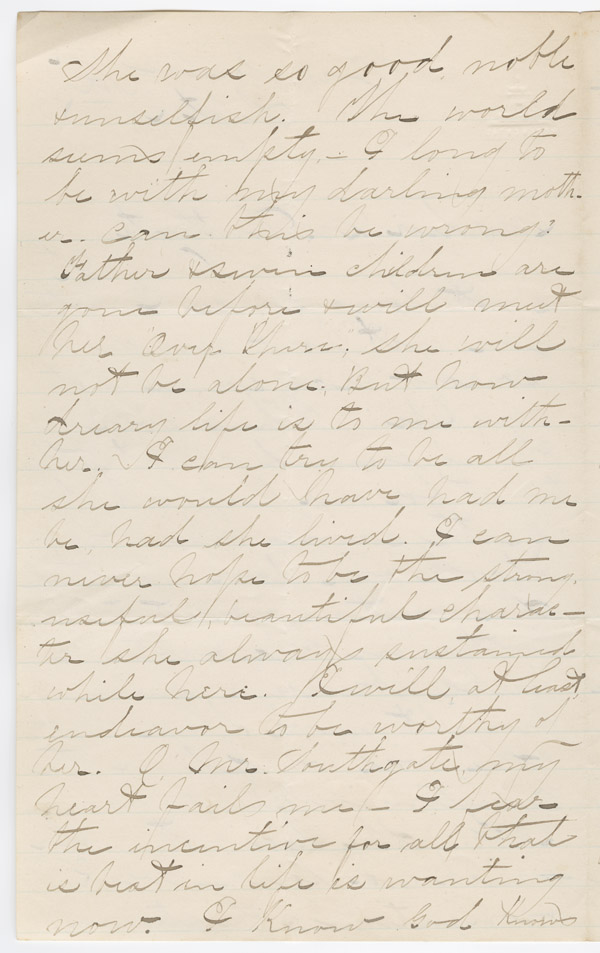 She was so good, noble
& unselfish. The world
seems empty. - I long to
be with my darling moth-
er. can this be wrong?
Father & children are
gone before & will meet
her "Over There", she will
not be alone. But how
dreary life is to me with-
her. I can try to be all
she would have had me
be, had she lived. I can
never hope to be the strong,
useful, beautiful charac-
ter she always sustained
while here. I will, at least,
endeavor to be worthy of
her. O, Mr. Southgate, my
heart fails me - I fear
the incentive for all that
is best in life is wanting
now. I know God knows